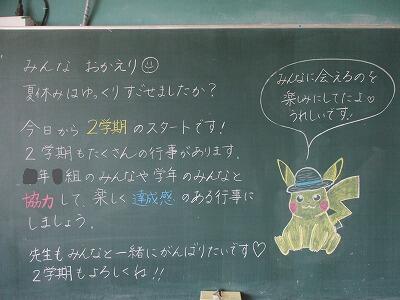 みんな おかえり☺
夏休みはゆっくりすごせましたか?
今日から2学期のスタートです!
2学期もたくさんの行事があります.
年 組のみんなや学年のみんなと
協力して、楽しく達成感のある行事に
しましょう.
先生もみんなと一緒にがんばりたいです♡
2学期もよろしくね!!
みんなに会えるのを
楽しみにしてたよ♡
うれしいです!!